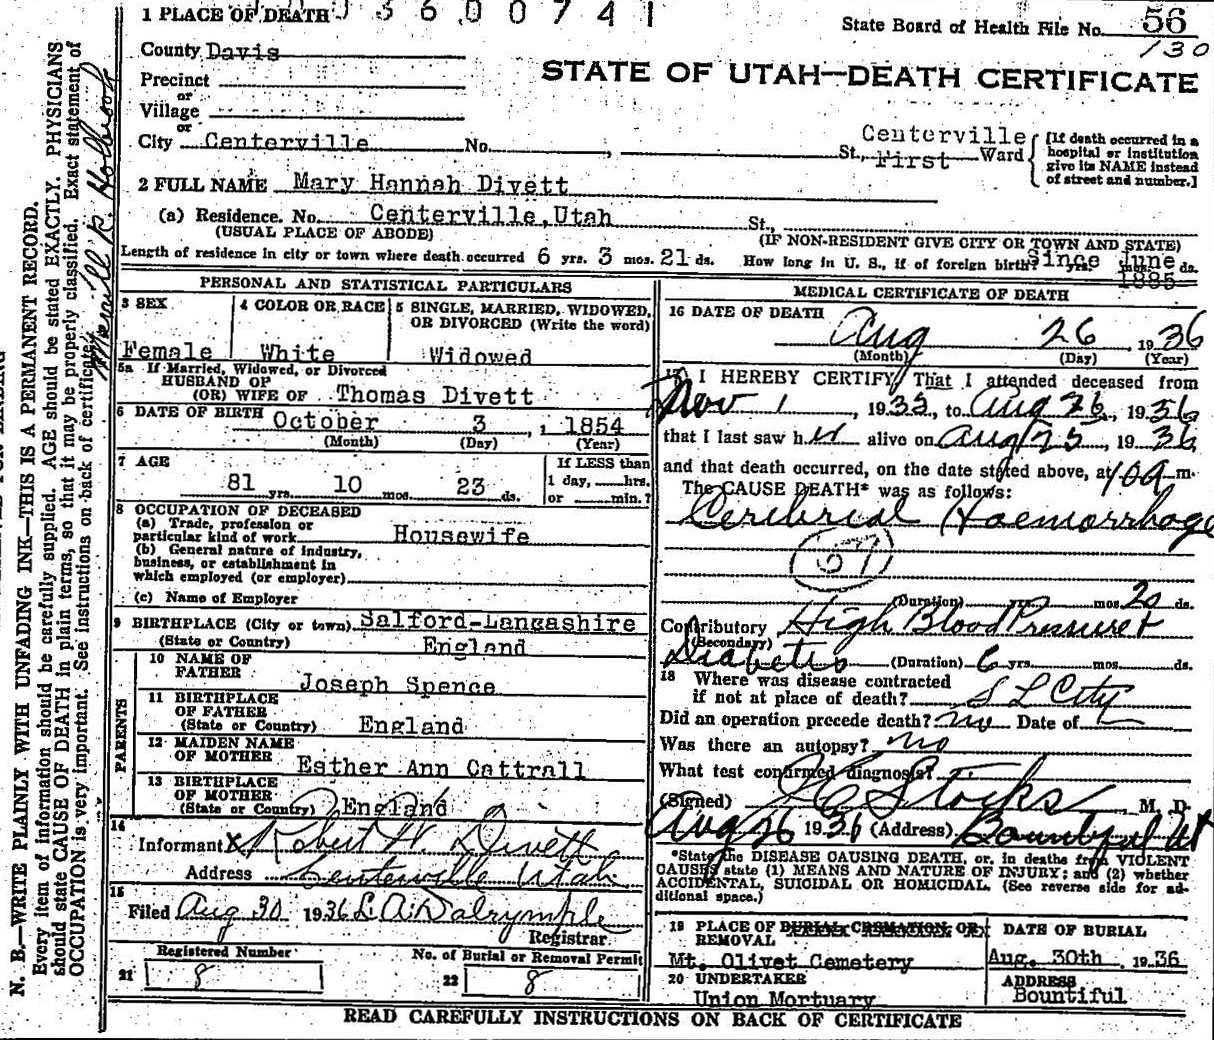 1 PLACE OF DEATH 3600741
State Board of Health File No. 56
130
County Davis
STATE OF UTAH—DEATH CERTIFICATE
Precinct
or
Village
or
City Centerville No. , St., Centerville First Ward
[If death occurred in a hospital or institution give its NAME instead of street and number.]
2 FULL NAME Mary Hannah Divett
(a) Residence. No. Centerville, Utah St.,
(USUAL PLACE OF ABODE) (IF NON-RESIDENT GIVE CITY OR TOWN AND STATE)
Length of residence in city or town where death occurred 6 yrs. 3 mos. 21 ds. How long in U. S., if of foreign birth? Since June 1885 yrs. mos. ds.
PERSONAL AND STATISTICAL PARTICULARS
3 SEX 4 COLOR OR RACE 5 SINGLE, MARRIED, WIDOWED, OR DIVORCED (Write the word)
Female White Widowed
5a If Married, Widowed, or Divorced
HUSBAND OF
(OR) WIFE OF Thomas Divett
6 DATE OF BIRTH October 3, 1854
(Month) (Day) (Year)
7 AGE If LESS than
81 yrs. 10 mos. 23 ds. 1 day, hrs.
or min.?
8 OCCUPATION OF DECEASED
(a) Trade, profession or
particular kind of work Housewife
(b) General nature of industry,
business, or establishment in
which employed (or employer)
(c) Name of Employer
9 BIRTHPLACE (City or town) Salford-Lancashire
(State or Country) England
PARENTS
10 NAME OF
FATHER Joseph Spence
11 BIRTHPLACE
OF FATHER
(State or Country) England
12 MAIDEN NAME
OF MOTHER Esther Ann Cattrall
13 BIRTHPLACE
OF MOTHER
(State or Country) England
14
Informant X Robert W. Divett
Address Centerville Utah
15
Filed Aug 30 1936 L. A. Dalrymple
Registrar
Registered Number No. of Burial or Removal Permit
21 8 22 8
MEDICAL CERTIFICATE OF DEATH
16 DATE OF DEATH
Aug 26 1936
(Month) (Day) (Year)
17 I HEREBY CERTIFY, That I attended deceased from
Nov 1, 1935, to Aug 26, 1936
that I last saw her alive on Aug 25, 1936
and that death occurred, on the date stated above, at 10 a m.
The CAUSE DEATH* was as follows:
Cerebrial Haemorrhage
(Duration) yrs. mos. 20 ds.
Contributory High Blood Pressure +
(Secondary)
Diabetis (Duration) 6 yrs. mos. ds.
18 Where was disease contracted
if not at place of death? S L City
Did an operation precede death? no Date of
Was there an autopsy? no
What test confirmed diagnosis?
(Signed) Stocks M. D.
Aug 26 1936 (Address) Bountiful Ut
*State the DISEASE CAUSING DEATH, or, in deaths from VIOLENT
CAUSES, state (1) MEANS AND NATURE OF INJURY; and (2) whether
ACCIDENTAL, SUICIDAL OR HOMICIDAL. (See reverse side for ad-
ditional space.)
19 PLACE OF BURIAL CREMATION OR REMOVAL DATE OF BURIAL
Mt. Olivet Cemetery Aug. 30th, 1936
20 UNDERTAKER ADDRESS
Union Mortuary Bountiful
READ CAREFULLY INSTRUCTIONS ON BACK OF CERTIFICATE
N. B.—WRITE PLAINLY WITH UNFADING INK—THIS IS A PERMANENT RECORD.
Every item of information should be carefully supplied. AGE should be stated EXACTLY. PHYSICIANS
should state CAUSE OF DEATH in plain terms, so that it may be properly classified. Exact statement of
OCCUPATION is very important. See instructions on back of certificate.